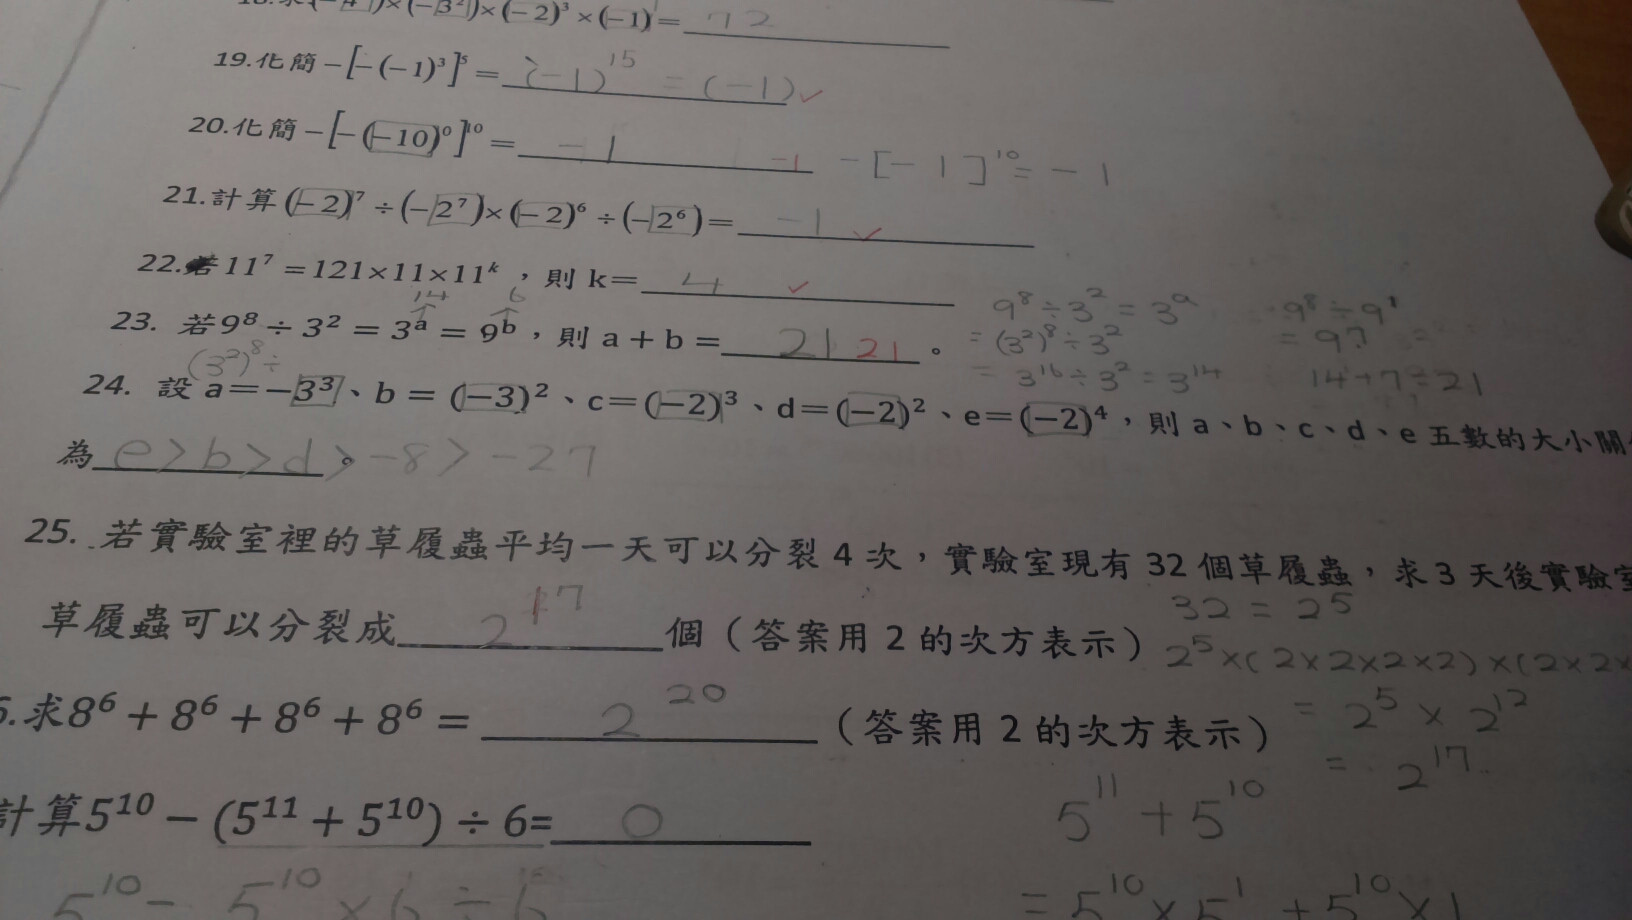 ×(-3²)×(-2)³×(-1)= 72
19.化簡-[-(-1)³]⁵= (-1)¹⁵ = (-1) ✓
20.化簡-[-(-10)⁰]¹⁰= -1 -1 -[-1]¹⁰= -1
21.計算(-2)⁷÷(-2⁷)×(-2)⁶÷(-2⁶)= -1 ✓
22.若11⁷=121×11×11ᵏ,則k= 4 ✓
14 6
23. 若9⁸÷3²=3ᵃ=9ᵇ,則a+b= 21 21 。
(3²)⁸÷
9⁸÷3²=3ᵃ
=(3²)⁸÷3²
=3¹⁶÷3²=3¹⁴
9⁸÷9¹
=97
14+7=21
24. 設a=-3³、b=(-3)²、c=(-2)³、d=(-2)²、e=(-2)⁴,則a、b、c、d、e五數的大小關
為 e>b>d>-8>-27 。
25. 若實驗室裡的草履蟲平均一天可以分裂4次,實驗室現有32個草履蟲,求3天後實驗室
草履蟲可以分裂成 2¹⁷ 個(答案用2的次方表示)
32=2⁵
2⁵×(2×2×2×2)×(2×2×
=2⁵×2¹²
=2¹⁷
.求8⁶+8⁶+8⁶+8⁶= 2²⁰ (答案用2的次方表示)
計算5¹⁰-(5¹¹+5¹⁰)÷6= 0
5¹⁰-5¹⁰×6÷6
5¹¹+5¹⁰
=5¹⁰×5¹+5¹⁰×1